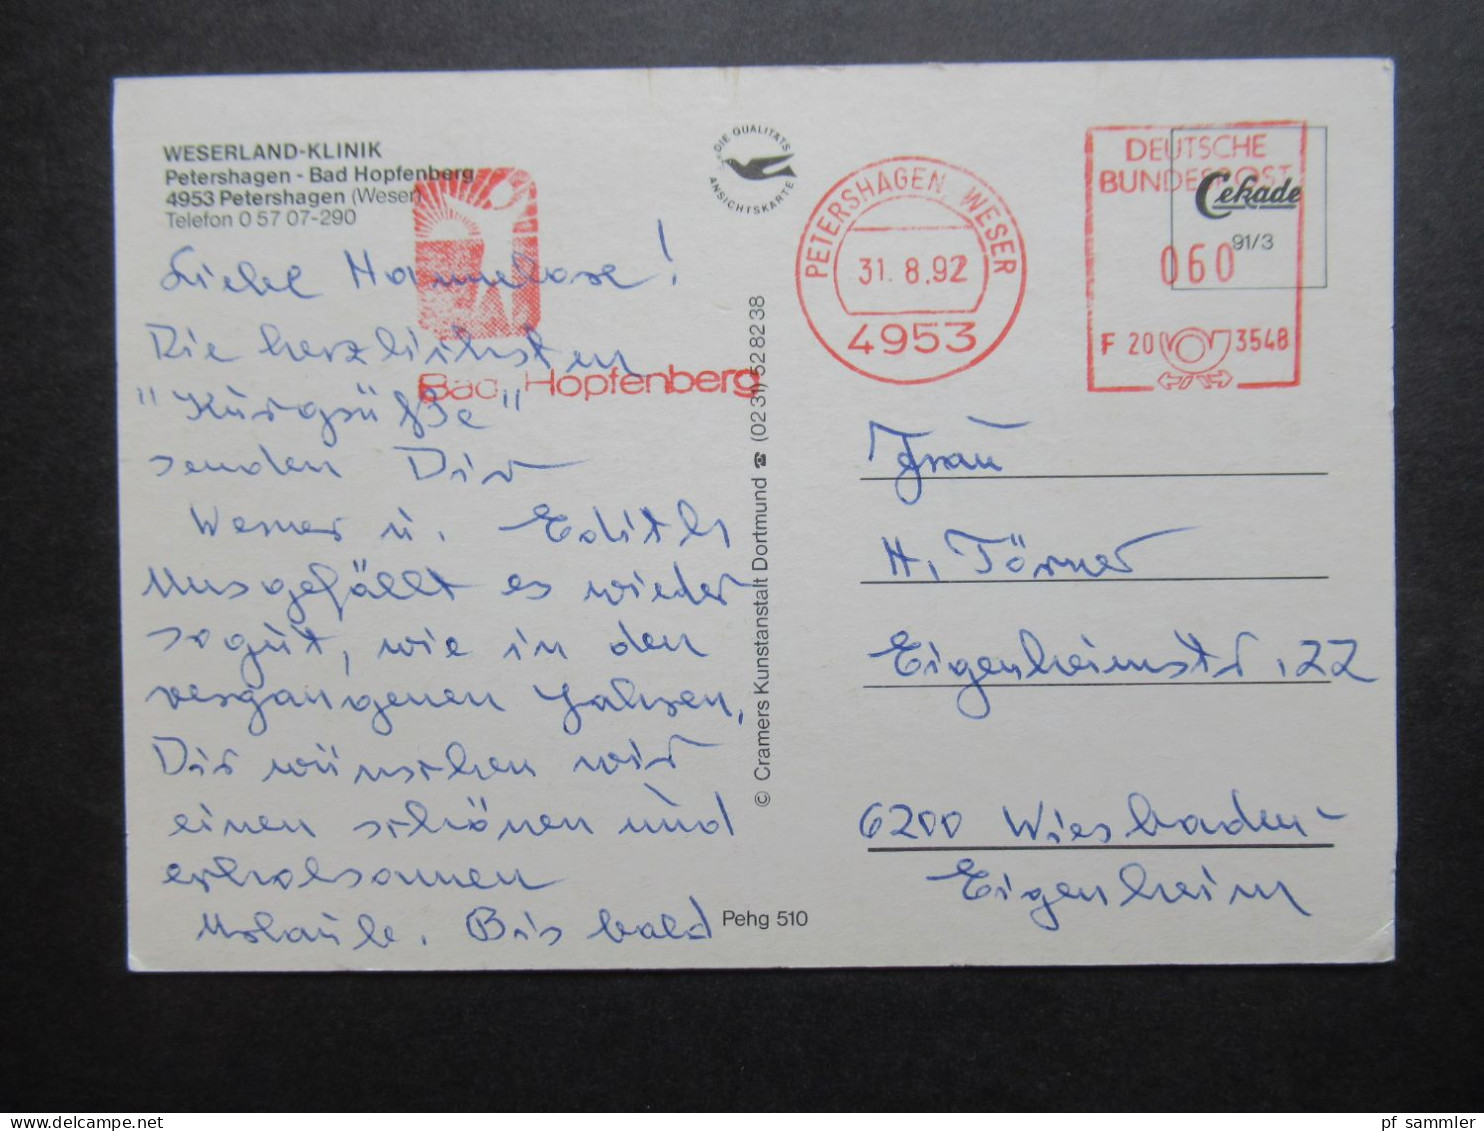 WESERLAND-KLINIK
Petershagen - Bad Hopfenberg
4953 Petershagen (Weser)
Telefon 0 57 07-290
Liebe Hannelore!
Die herzlichsten
"Kurgrüße"
senden Dir
Werner u. Edith
Uns gefällt es wieder
so gut, wie in den
vergangenen Jahren,
Dir wünschen wir
einen schönen und
erholsamen
Urlaub. Bis bald
Bad Hopfenberg
DIE QUALITÄTS
ANSICHTSKARTE
© Cramers Kunstanstalt Dortmund ☎ (02 31) 52 82 38
Pehg 510
PETERSHAGEN WESER
31. 8.92
4953
DEUTSCHE
BUNDESPOST
060
F 20 3548
Cekade
91/3
Frau
H. Törner
Eigenheimstr. 22
6200 Wiesbaden-
Eigenheim
pf_sammler
www.delcampe.net